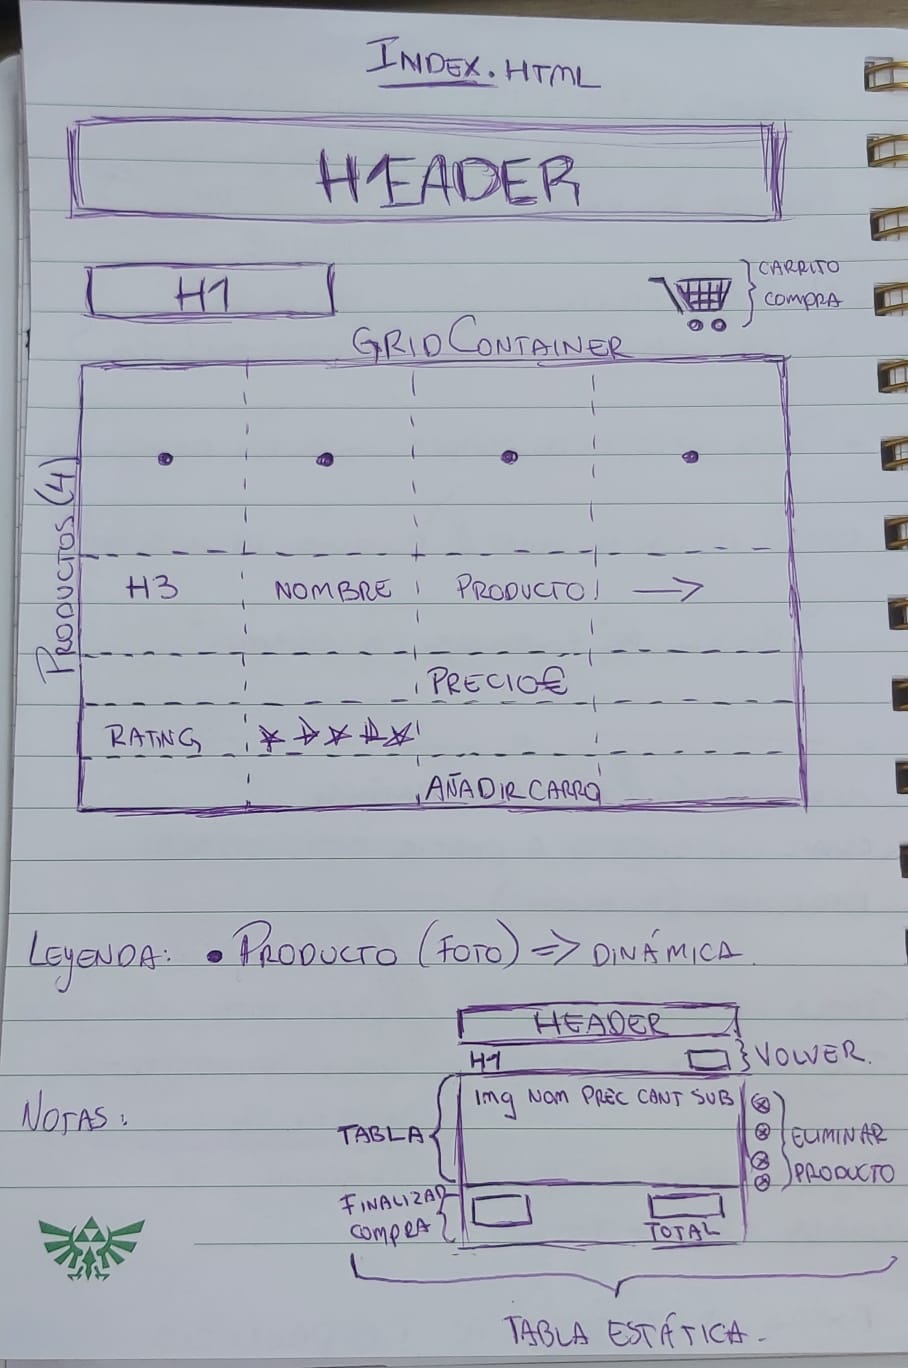 INDEX.HTML
HEADER
H1
CARRITO
COMPRA
GRID CONTAINER
PRODUCTOS (4)
H3 NOMBRE PRODUCTO
PRECIO€
RATING
AÑADIR CARRO
LEYENDA: • PRODUCTO (FOTO) => DINÁMICA.
HEADER
H1
VOLVER.
NOTAS:
TABLA
Img NOM PREC CANT SUB
ELIMINAR
PRODUCTO
FINALIZAR
COMPRA
TOTAL
TABLA ESTÁTICA.